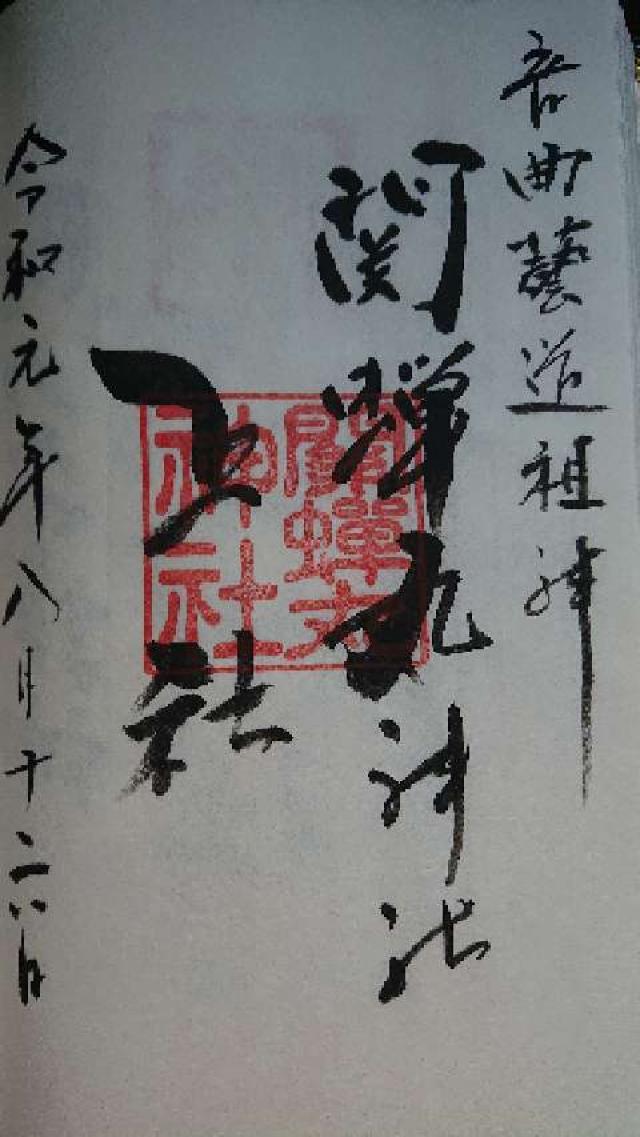 音曲藝道祖神
関蝉丸神社
下社
令和元年八月十六日
關蟬丸
神社